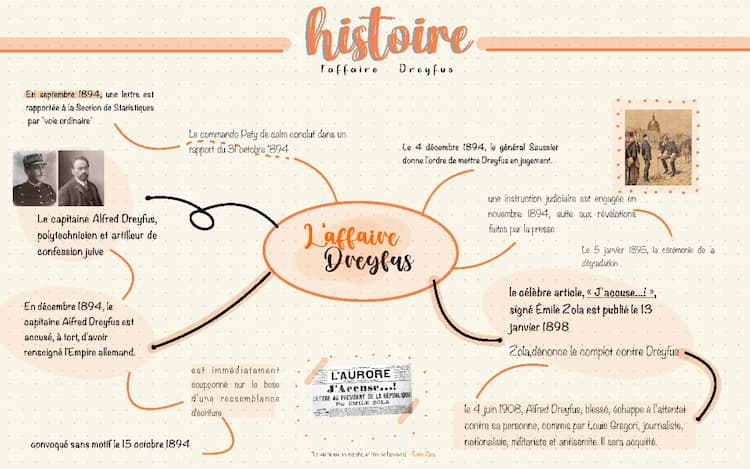 histoire
l'affaire Dreyfus
En septembre 1894, une lettre est
rapportée à la Section de Statistiques
par "voie ordinaire"
Le commando Paty de calm conclut dans un
rapport du 31 octobre 1894
Le 4 décembre 1894, le général Saussier
donne l'ordre de mettre Dreyfus en jugement.
une instruction judiciaire est engagée en
novembre 1894, suite aux révélations
faites par la presse
Le 5 janvier 1895, la cérémonie de la
dégradation
Le capitaine Alfred Dreyfus,
polytechnicien et artilleur de
confession juive
L'affaire
Dreyfus
En décembre 1894, le
capitaine Alfred Dreyfus est
accusé, à tort, d'avoir
renseigné l'Empire allemand.
le célèbre article, « J'accuse...! »,
signé Émile Zola est publié le 13
janvier 1898
Zola,dénonce le complot contre Dreyfus
est immédiatement
soupçonné sur la base
d'une ressemblance
d'écriture
convoqué sans motif le 15 octobre 1894
L'AURORE
J'Accuse...!
LETTRE AU PRÉSIDENT DE LA RÉPUBLIQUE
Par ÉMILE ZOLA
le 4 juin 1908, Alfred Dreyfus, blessé, échappe à l'attentat
contre sa personne, commis par Louis Gregori, journaliste,
nationaliste, militariste et antisémite. Il sera acquitté.